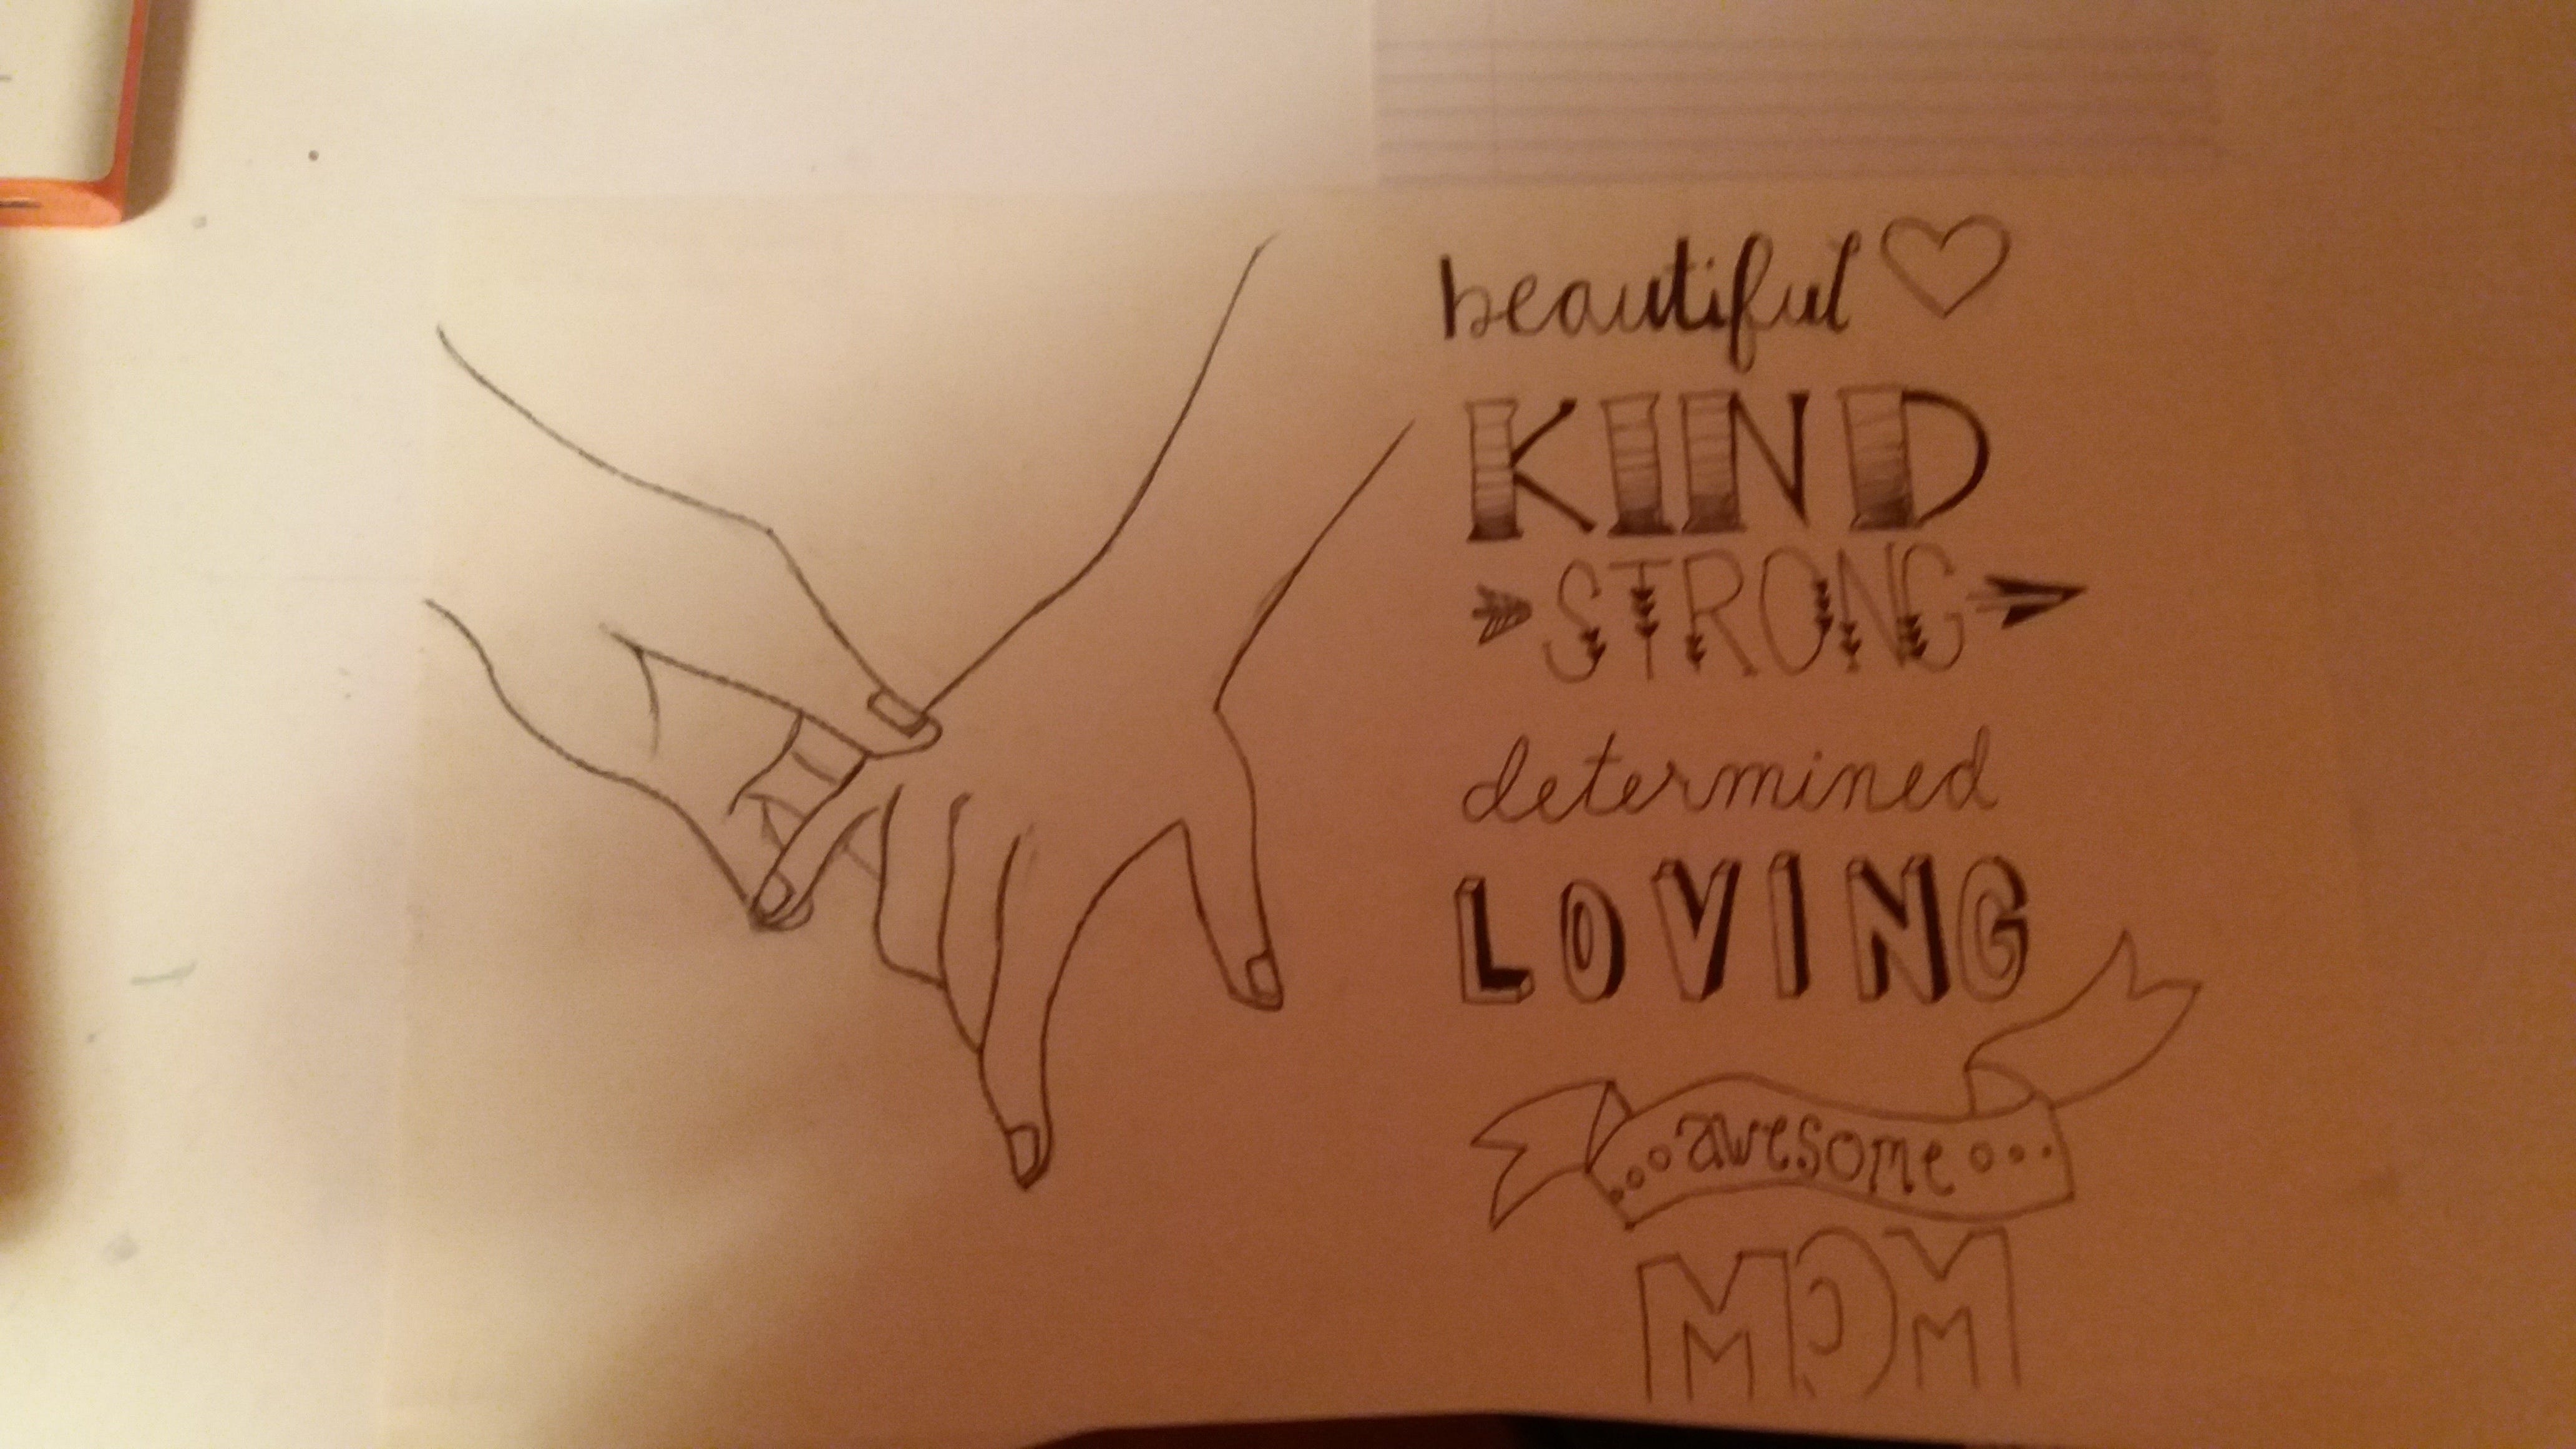 beautiful
KIND
STRONG
determined
LOVING
awesome
MOM